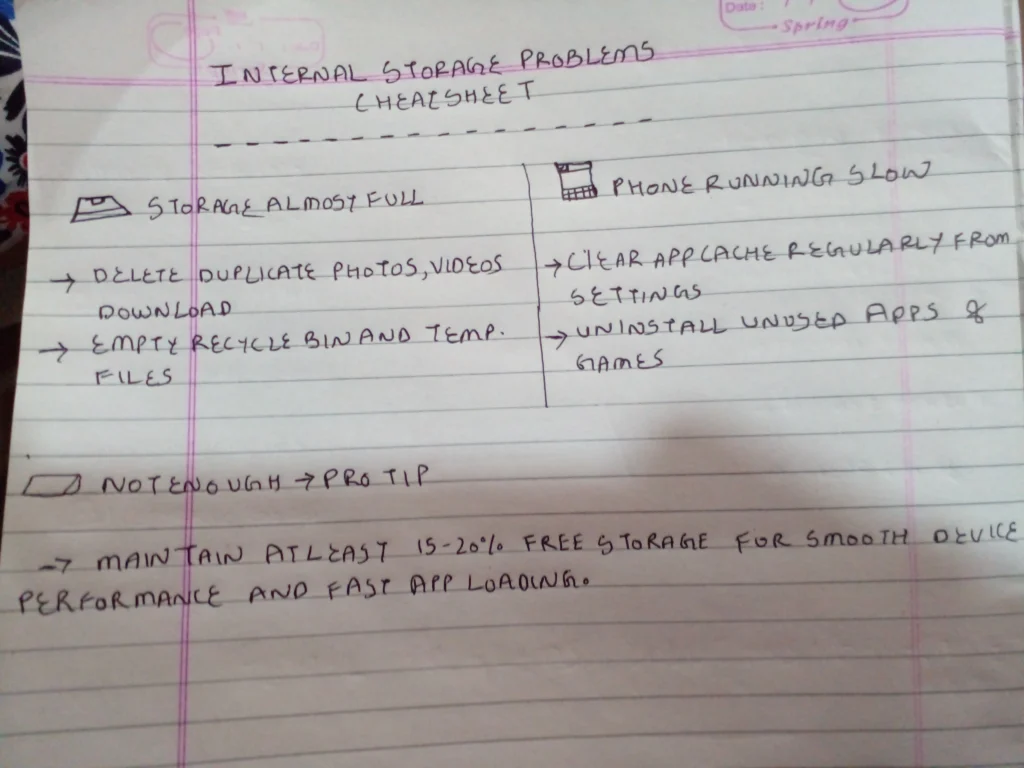 Date:
Spring
INTERNAL STORAGE PROBLEMS
CHEATSHEET
STORAGE ALMOST FULL
→ DELETE DUPLICATE PHOTOS, VIDEOS
DOWNLOAD
→ EMPTY RECYCLE BIN AND TEMP.
FILES
PHONE RUNNING SLOW
→ CLEAR APP CACHE REGULARLY FROM
SETTINGS
→ UNINSTALL UNUSED APPS &
GAMES
NOT ENOUGH → PRO TIP
→ MAINTAIN ATLEAST 15-20% FREE STORAGE FOR SMOOTH DEVICE
PERFORMANCE AND FAST APP LOADING.